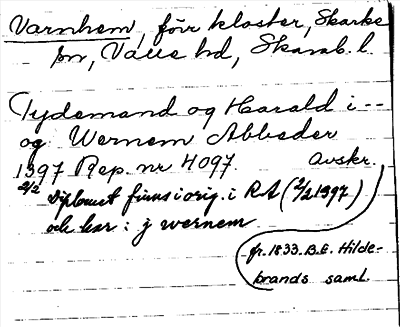 Varnhem, förr kloster, Skarke
sn, Valle hd, Skarab. l.
Tydemand og Harald i --
og Wernem Abbeder
1397 Rep. nr 4097. Avskr.
2/2 Diplomet finns i orig. i RA (2/2 1397)
och har: j wernem
fr. 1833. B.E. Hilde-
brands saml.